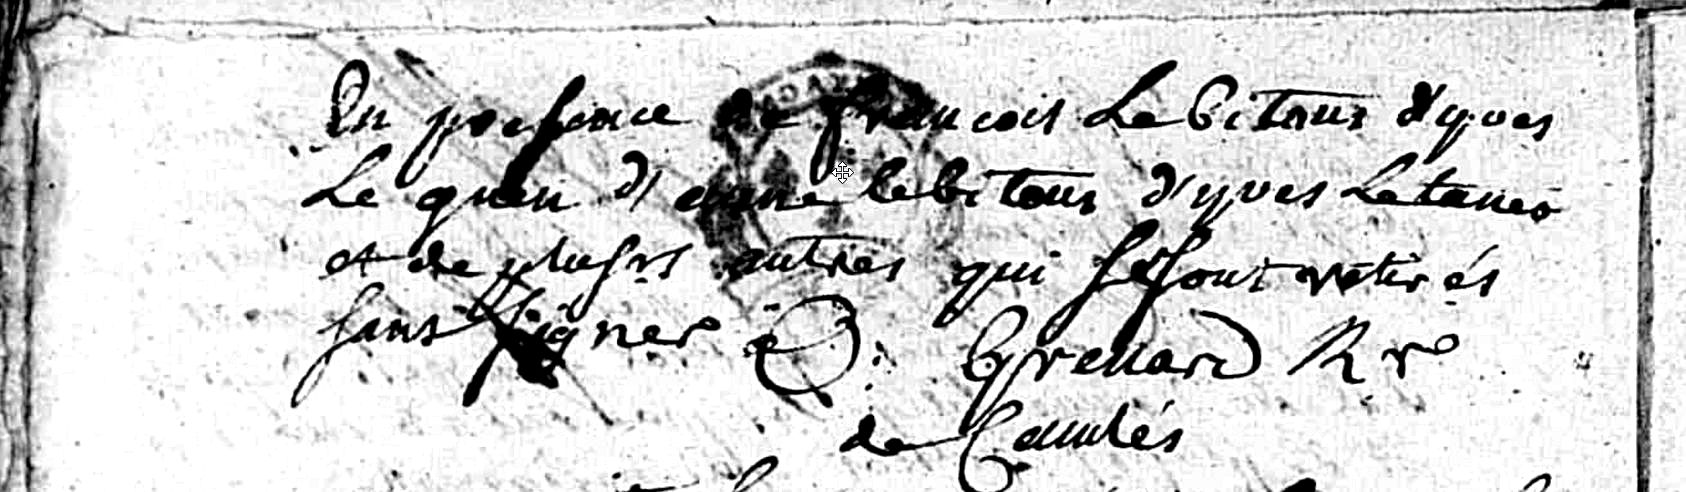 En presence de francois Le bitous d'yves
Le quen d'anne le bitous d'yves Le taner
et de plusrs autres qui se sont retirés
sans signer Grellard Rr
de Caulés